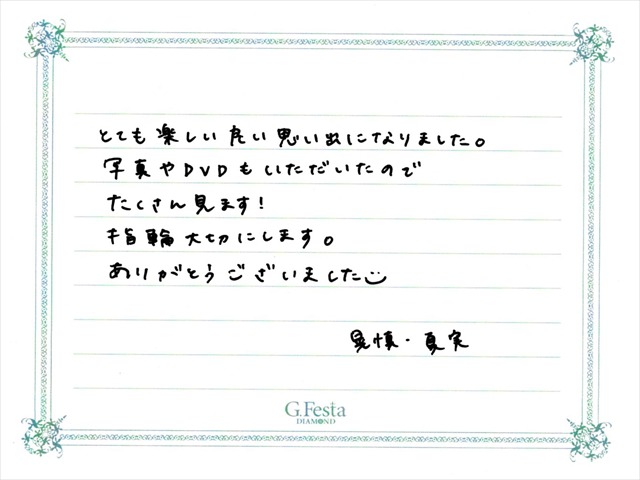 とても楽しい良い思い出になりました。
写真やDVDもいただいたので
たくさん見ます!
指輪大切にします。
ありがとうございました
晃慎・夏実
G.Festa
DIAMOND